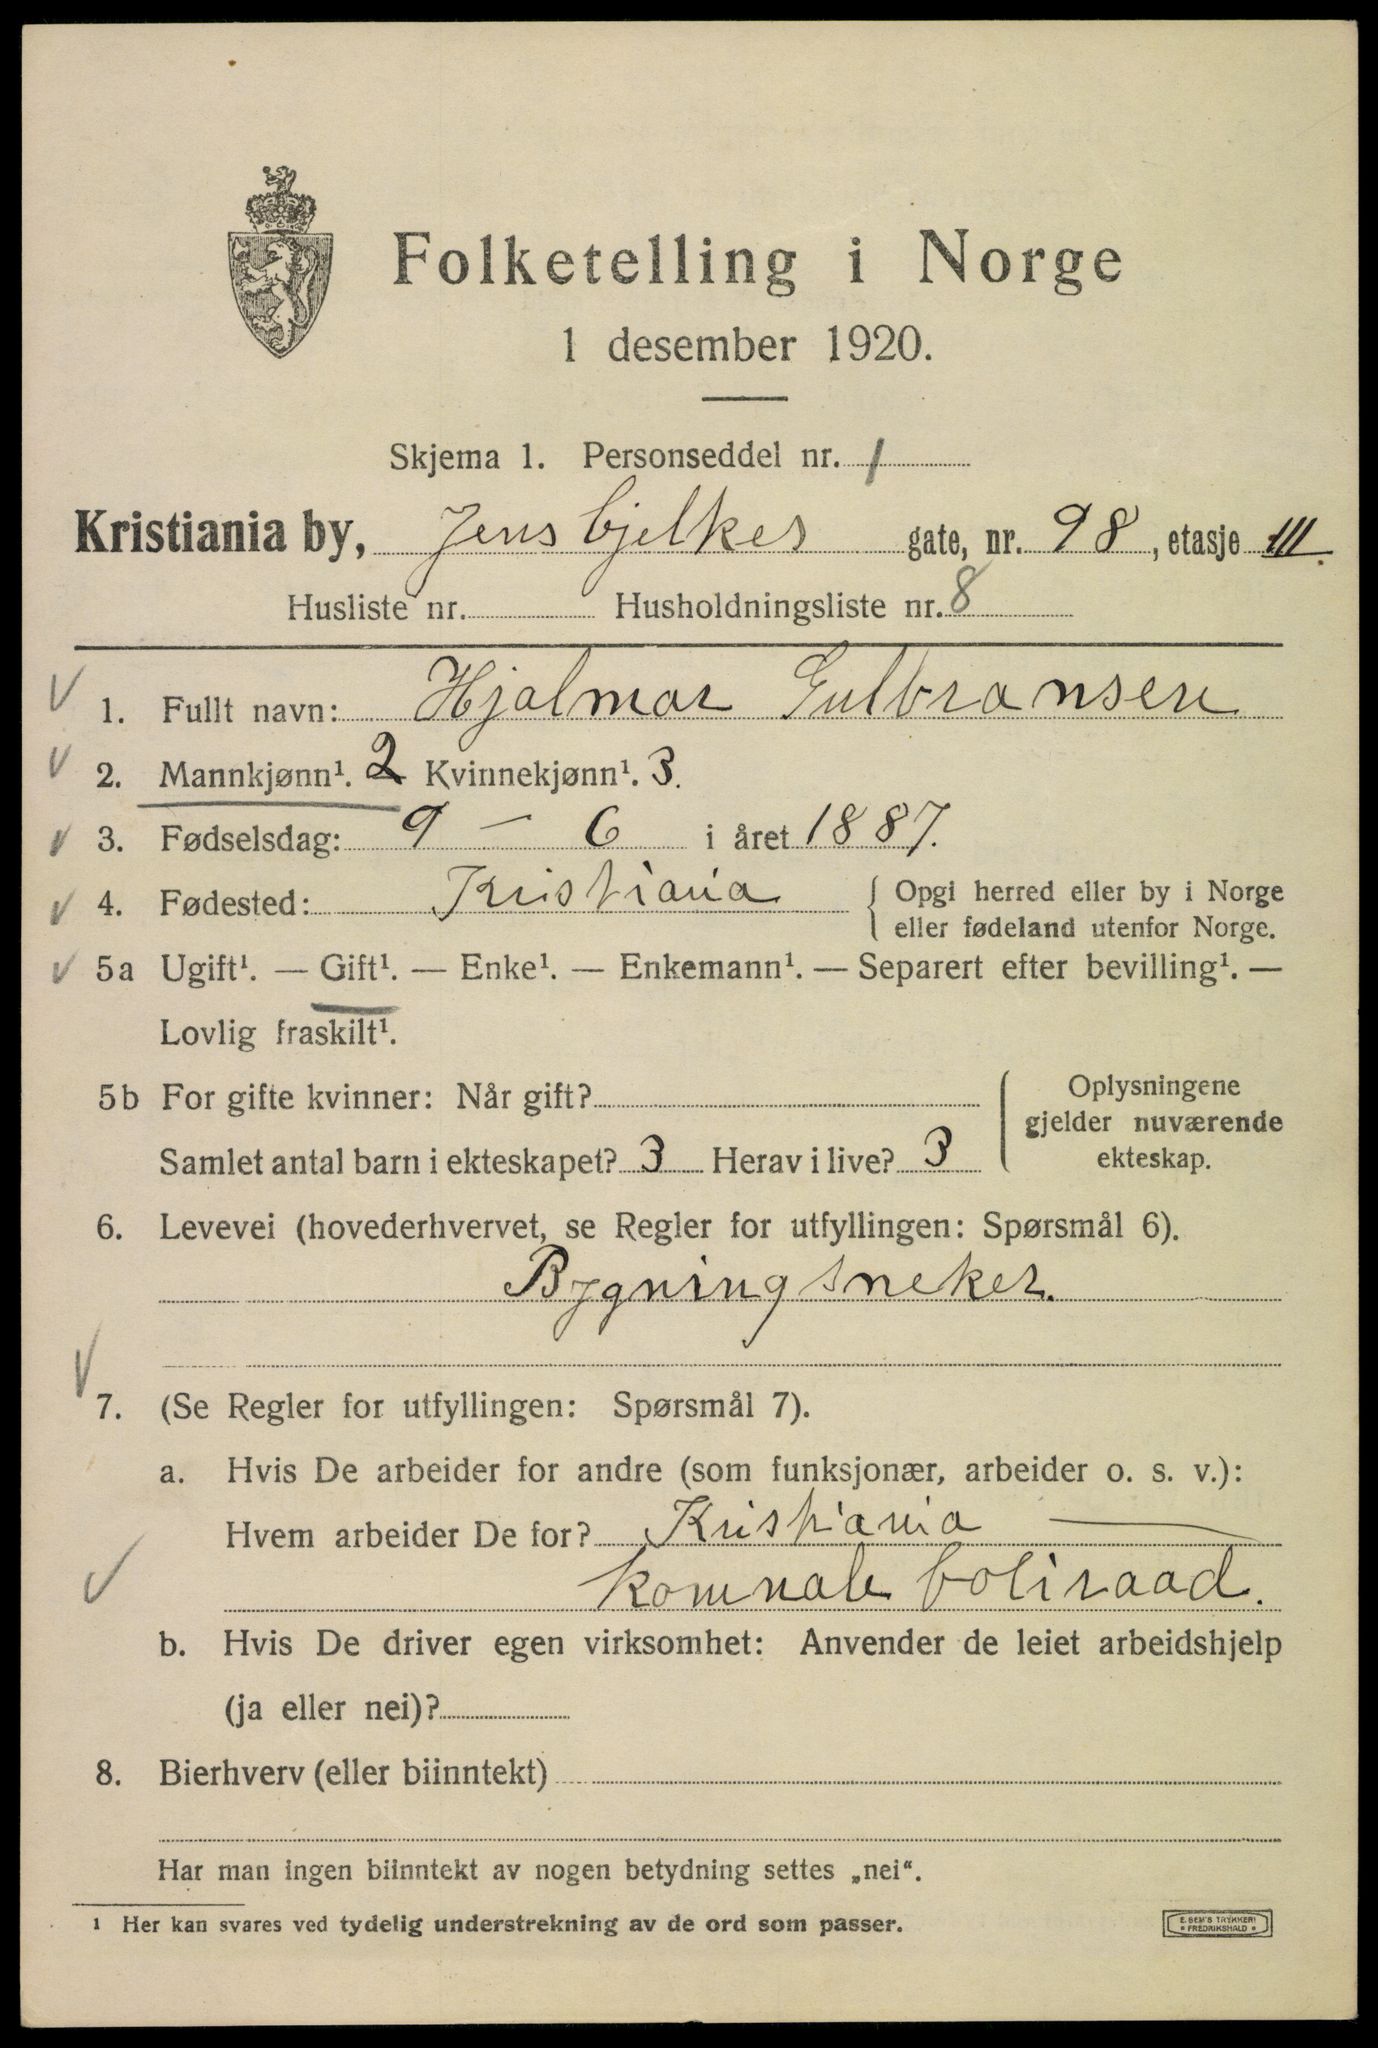 Folketelling i Norge
1 desember 1920.
Skjema 1. Personseddel nr. 1
Kristiania by, Jens bjelkes gate, nr. 98, etasje III.
Husliste nr. Husholdningsliste nr. 8
1. Fullt navn: Hjalmar Gulbransen
2. Mannkjønn¹. 2 Kvinnekjønn¹. 3.
3. Fødselsdag: 9 – 6 i året 1887.
4. Fødested: Kristiania { Opgi herred eller by i Norge
eller fødeland utenfor Norge.
5a Ugift¹. — Gift¹. — Enke¹. — Enkemann¹. — Separert efter bevilling¹. —
Lovlig fraskilt¹.
5b For gifte kvinner: Når gift?
Samlet antal barn i ekteskapet? 3 Herav i live? 3
Oplysningene
gjelder nuværende
ekteskap.
6. Levevei (hovederhvervet, se Regler for utfyllingen: Spørsmål 6).
Bygningsneker.
7. (Se Regler for utfyllingen: Spørsmål 7).
a. Hvis De arbeider for andre (som funksjonær, arbeider o. s. v.):
Hvem arbeider De for? Kristiania —
komnale boliraad.
b. Hvis De driver egen virksomhet: Anvender de leiet arbeidshjelp
(ja eller nei)?
8. Bierhverv (eller biinntekt)
Har man ingen biinntekt av nogen betydning settes „nei“.
¹ Her kan svares ved tydelig understrekning av de ord som passer.
E. SEM'S TRYKKERI
FREDRIKSHALD